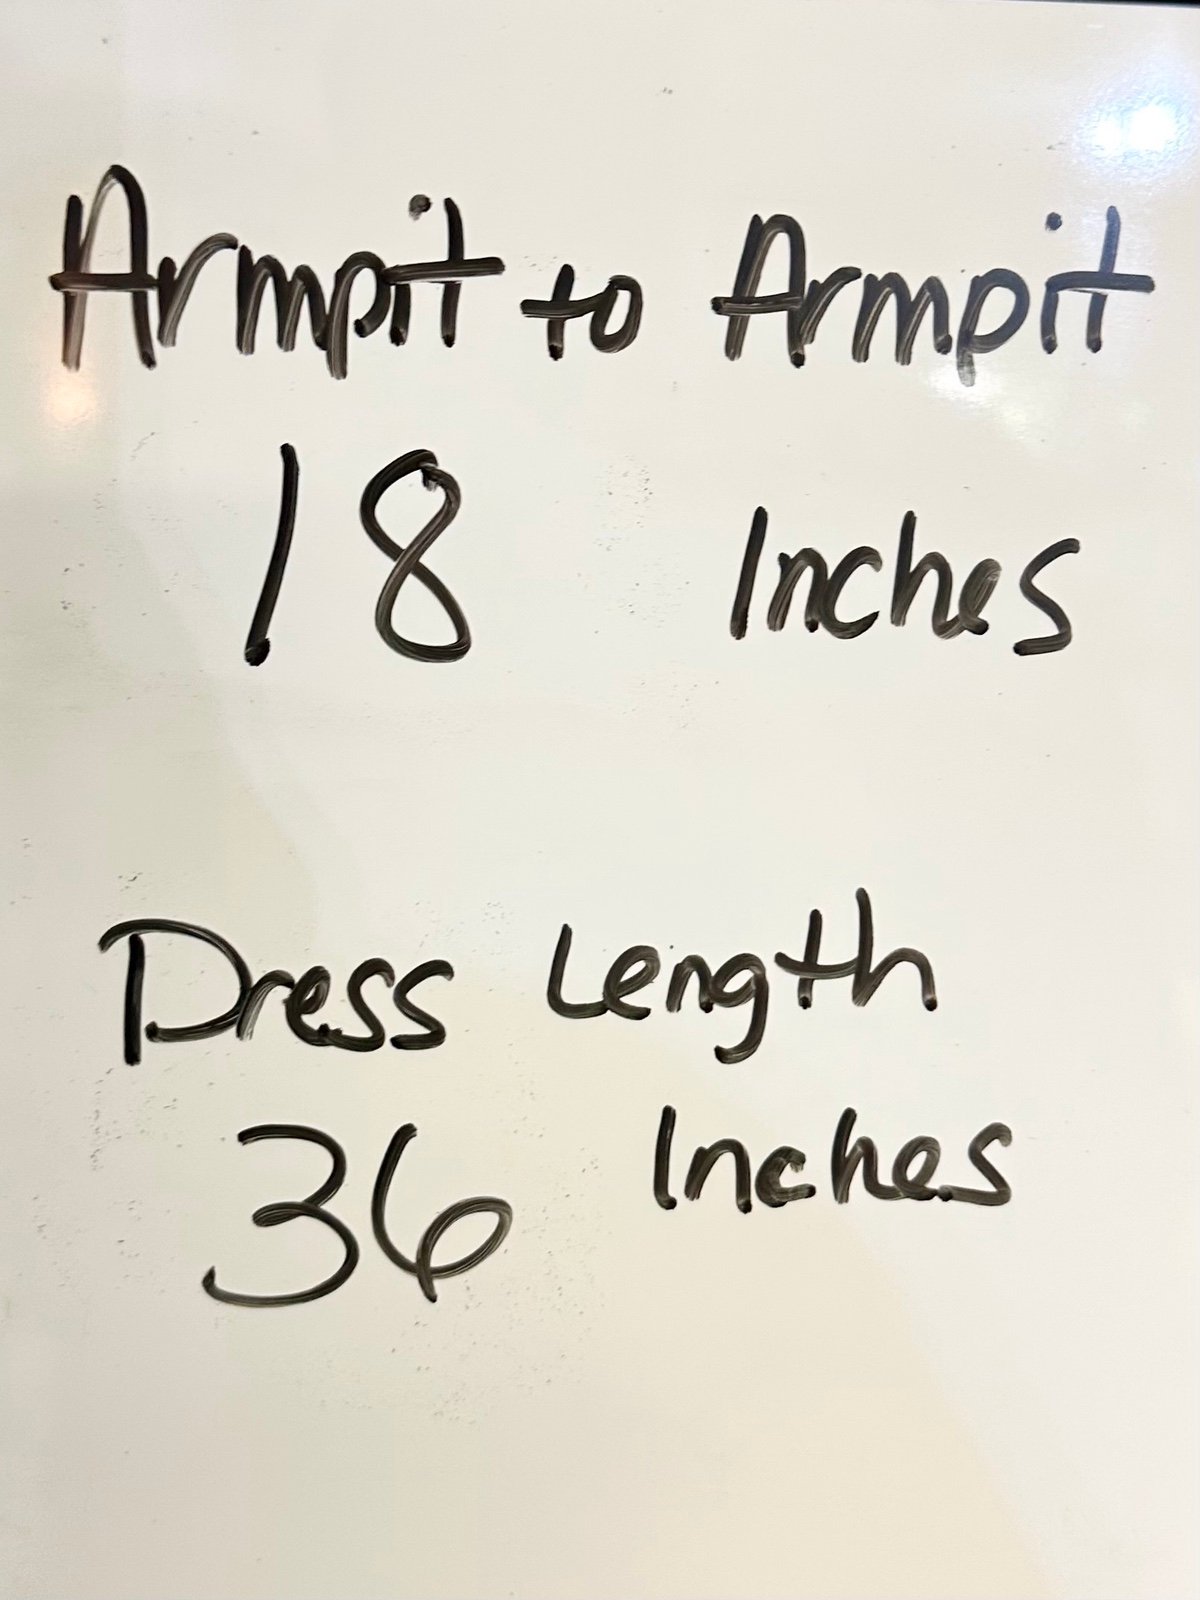 Armpit to Armpit
18 Inches
Dress Length
36 Inches